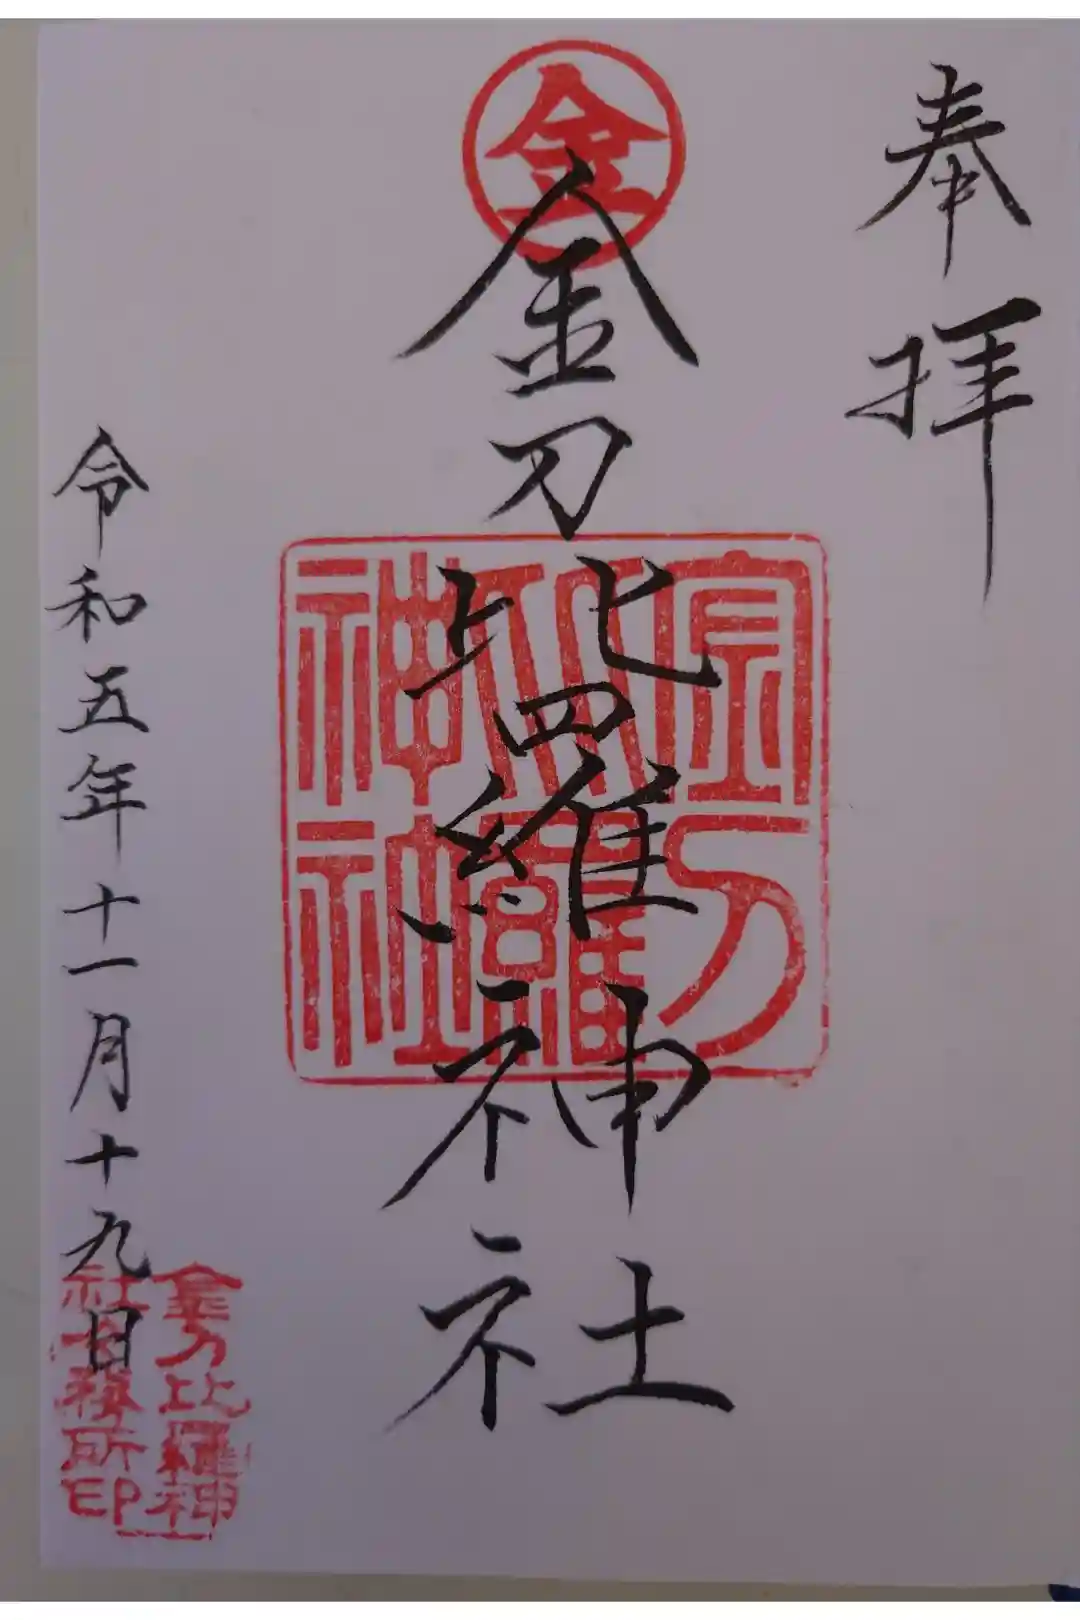 奉拝
金
金刀比羅神社
金刀比羅神社
令和五年十一月十九日
金刀比羅神
社務所印